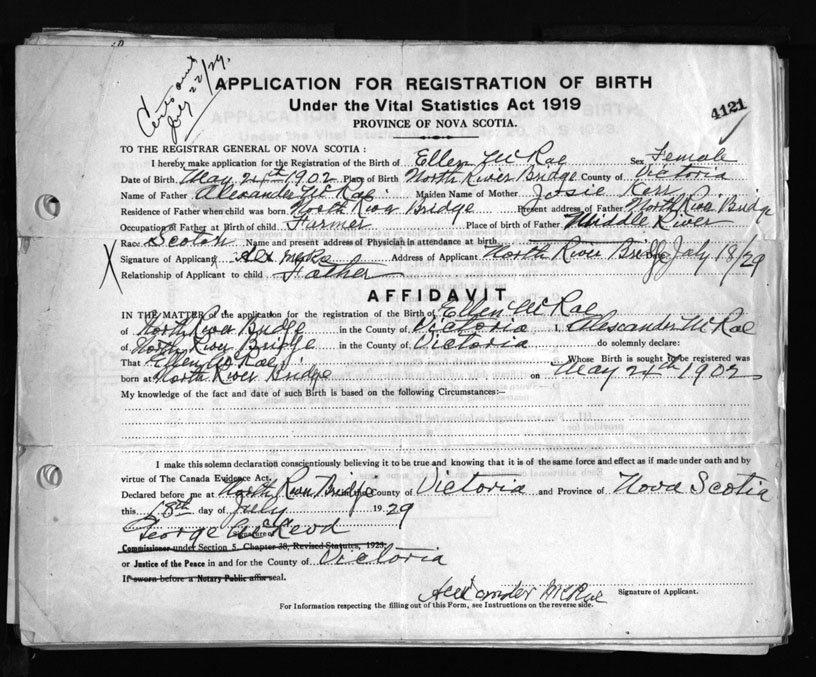 July 22/29.
APPLICATION FOR REGISTRATION OF BIRTH
Under the Vital Statistics Act 1919
4121
PROVINCE OF NOVA SCOTIA.
TO THE REGISTRAR GENERAL OF NOVA SCOTIA :
I hereby make application for the Registration of the Birth of Ellen McRae Sex Female
Date of Birth May 24th 1902 Place of Birth North River Bridge County of Victoria
Name of Father Alexander McRae Maiden Name of Mother Jessie Kerr
Residence of Father when child was born North River Bridge Present address of Father North River Bridge
Occupation of Father at Birth of child Farmer Place of birth of Father Middle River
Race Scotch Name and present address of Physician in attendance at birth
Signature of Applicant Alx McRae Address of Applicant North River Bridge July 18/29
Relationship of Applicant to child Father
AFFIDAVIT
IN THE MATTER of the application for the registration of the Birth of Ellen McRae
of North River Bridge in the County of Victoria I, Alexander McRae
of North River Bridge in the County of Victoria do solemnly declare:
That Ellen McRae Whose Birth is sought to be registered was
born at North River Bridge on May 24th 1902
My knowledge of the fact and date of such Birth is based on the following Circumstances:—
I make this solemn declaration conscientiously believing it to be true and knowing that it is of the same force and effect as if made under oath and by
virtue of The Canada Evidence Act.
Declared before me at North River Bridge in the County of Victoria and Province of Nova Scotia
this 18th day of July 1929
George McLeod
Signature of
Commissioner under Section 5, Chapter 38, Revised Statutes, 1923.
or Justice of the Peace in and for the County of Victoria
If sworn before a Notary Public affix seal.
Alexander McRae Signature of Applicant.
For Information respecting the filling out of this Form, see Instructions on the reverse side.